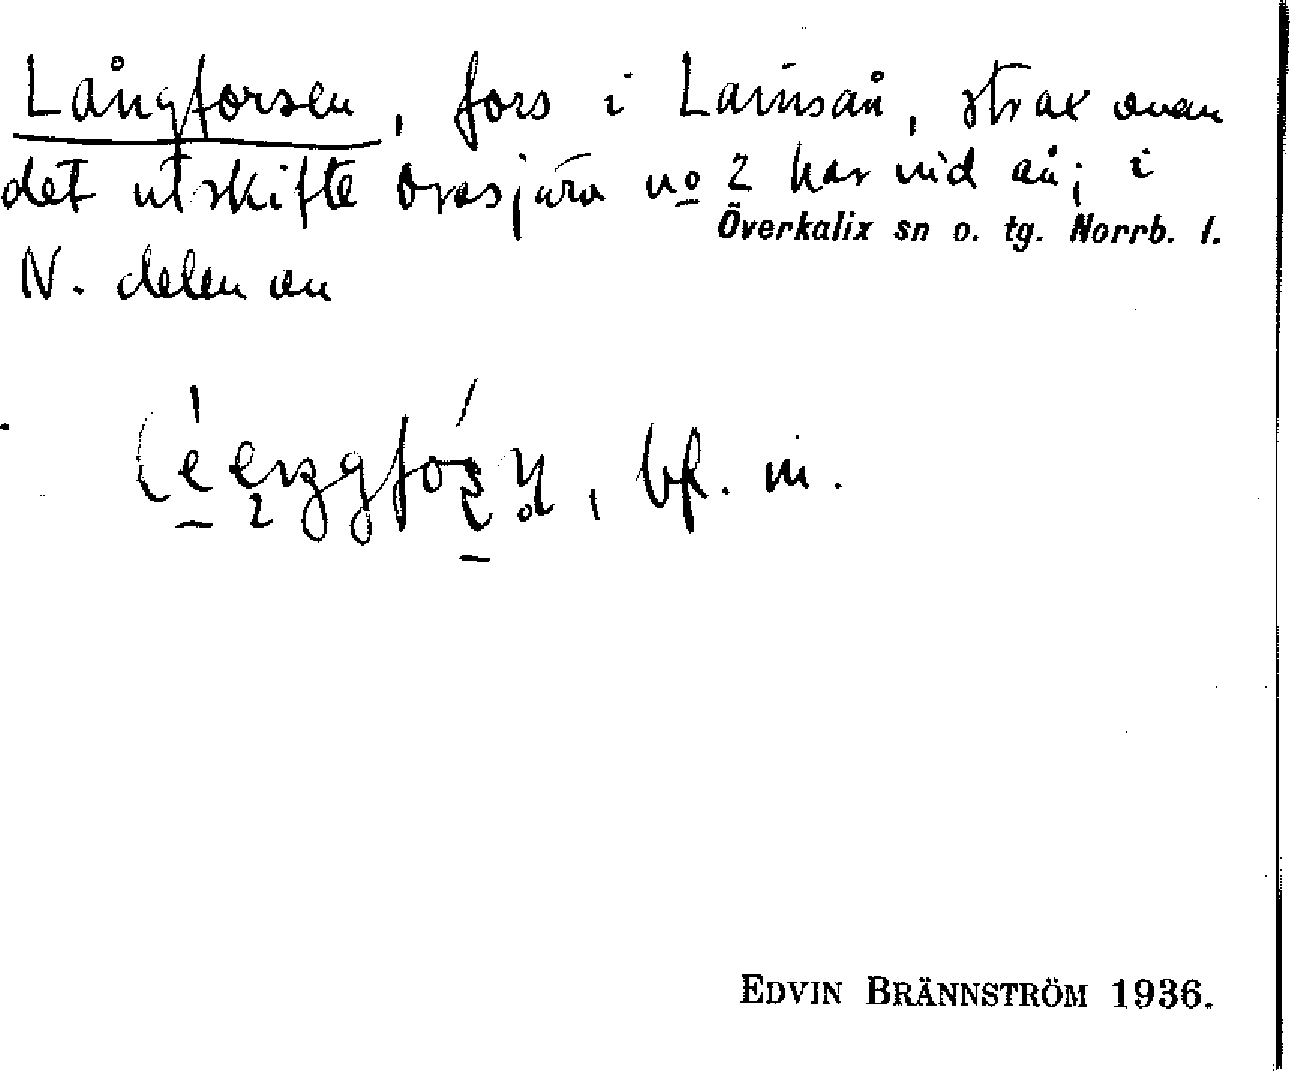 Långforsen, fors i Lainsån, strax ovan
det utskifte Orrsjärv no 2 har vid ån; i
Överkalix sn o. tg. Norrb. l.
N. delen av
bf. m.
EDVIN BRÄNNSTRÖM 1936.